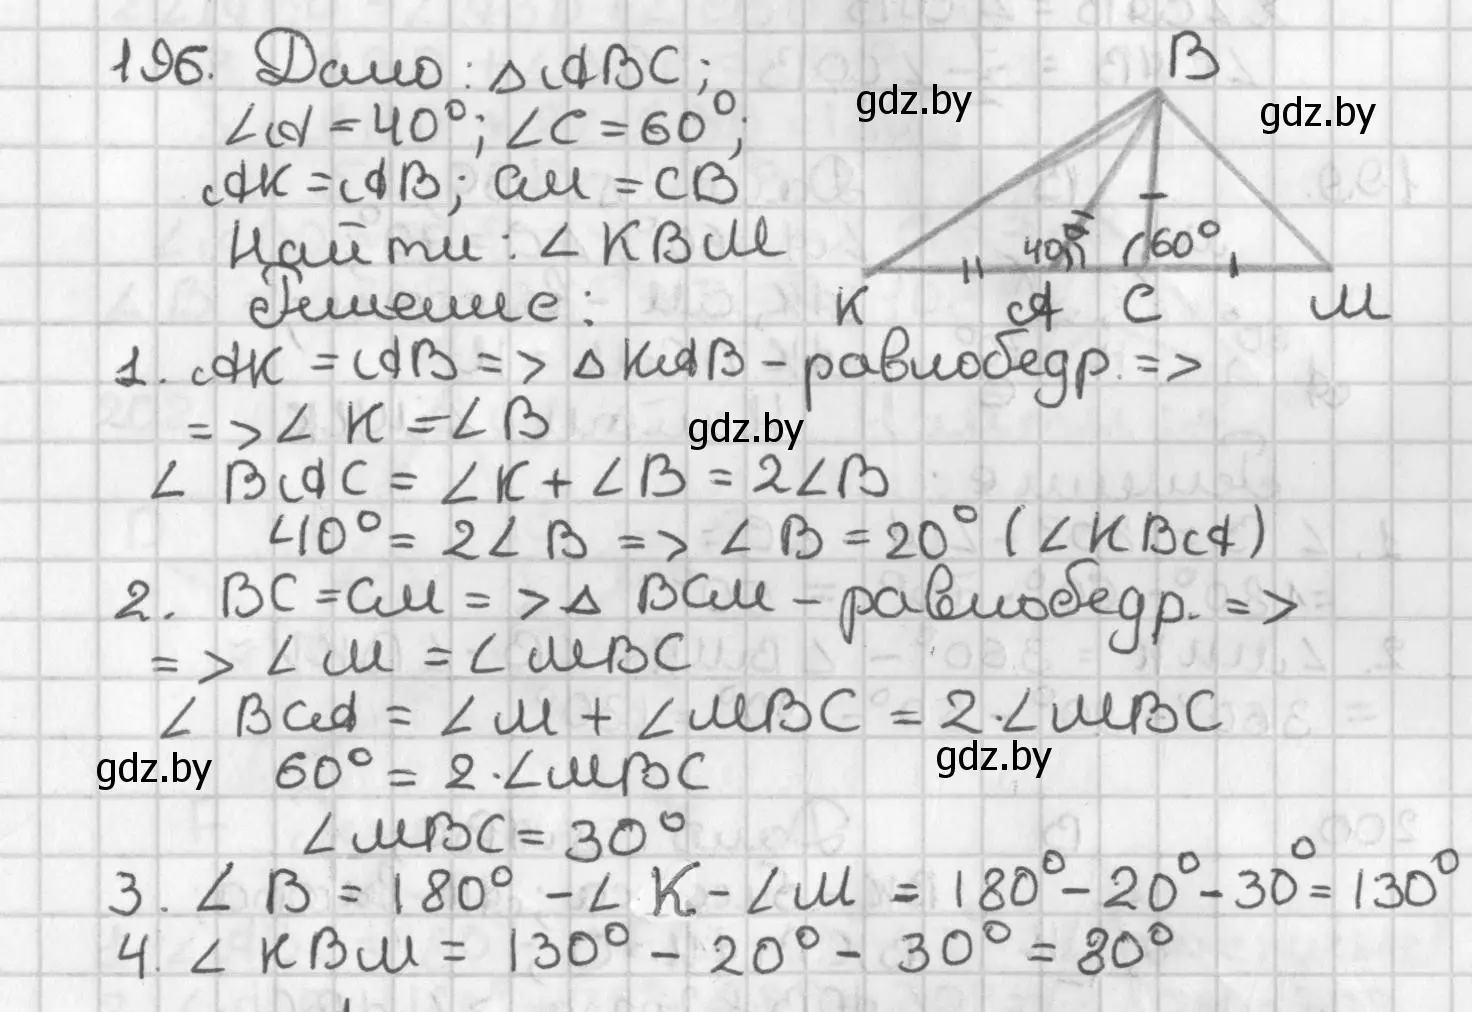 196. Дано: △ABC;
∠A = 40°; ∠C = 60°;
AK = AB; CM = CB
Найти: ∠KBM
Решение:
B
40° 60°
K A C M
gdz.by
gdz.by
1. AK = AB => △KAB – равнобедр. =>
=> ∠K = ∠B
gdz.by
∠BAC = ∠K + ∠B = 2∠B
40° = 2∠B => ∠B = 20° (∠KBA)
2. BC = CM => △BCM – равнобедр. =>
=> ∠M = ∠MBC
∠BCA = ∠M + ∠MBC = 2·∠MBC
gdz.by
gdz.by
60° = 2·∠MBC
∠MBC = 30°
3. ∠B = 180° – ∠K – ∠M = 180° – 20° – 30° = 130°
4. ∠KBM = 130° – 20° – 30° = 80°